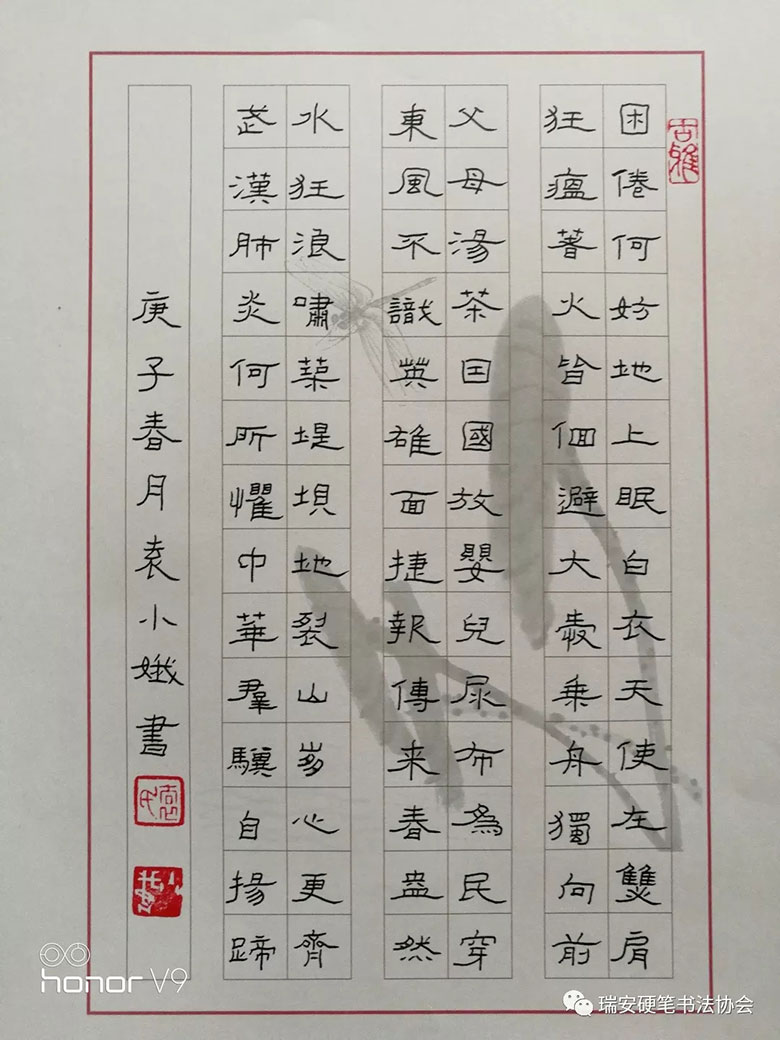 困倦何妨地上眠白衣天使在雙肩
狂瘟著火皆佪避大愛乘舟獨向前
父母湯茶因國放嬰兒尿布為民穿
東風不識英雄面捷報傳来春盎然
水狂浪嘯築堤垻地裂山岁心更齊
武漢肺炎何所懼中華羣驥自揚蹄
庚子春月袁小娥書
honor V9
瑞安硬笔书法协会